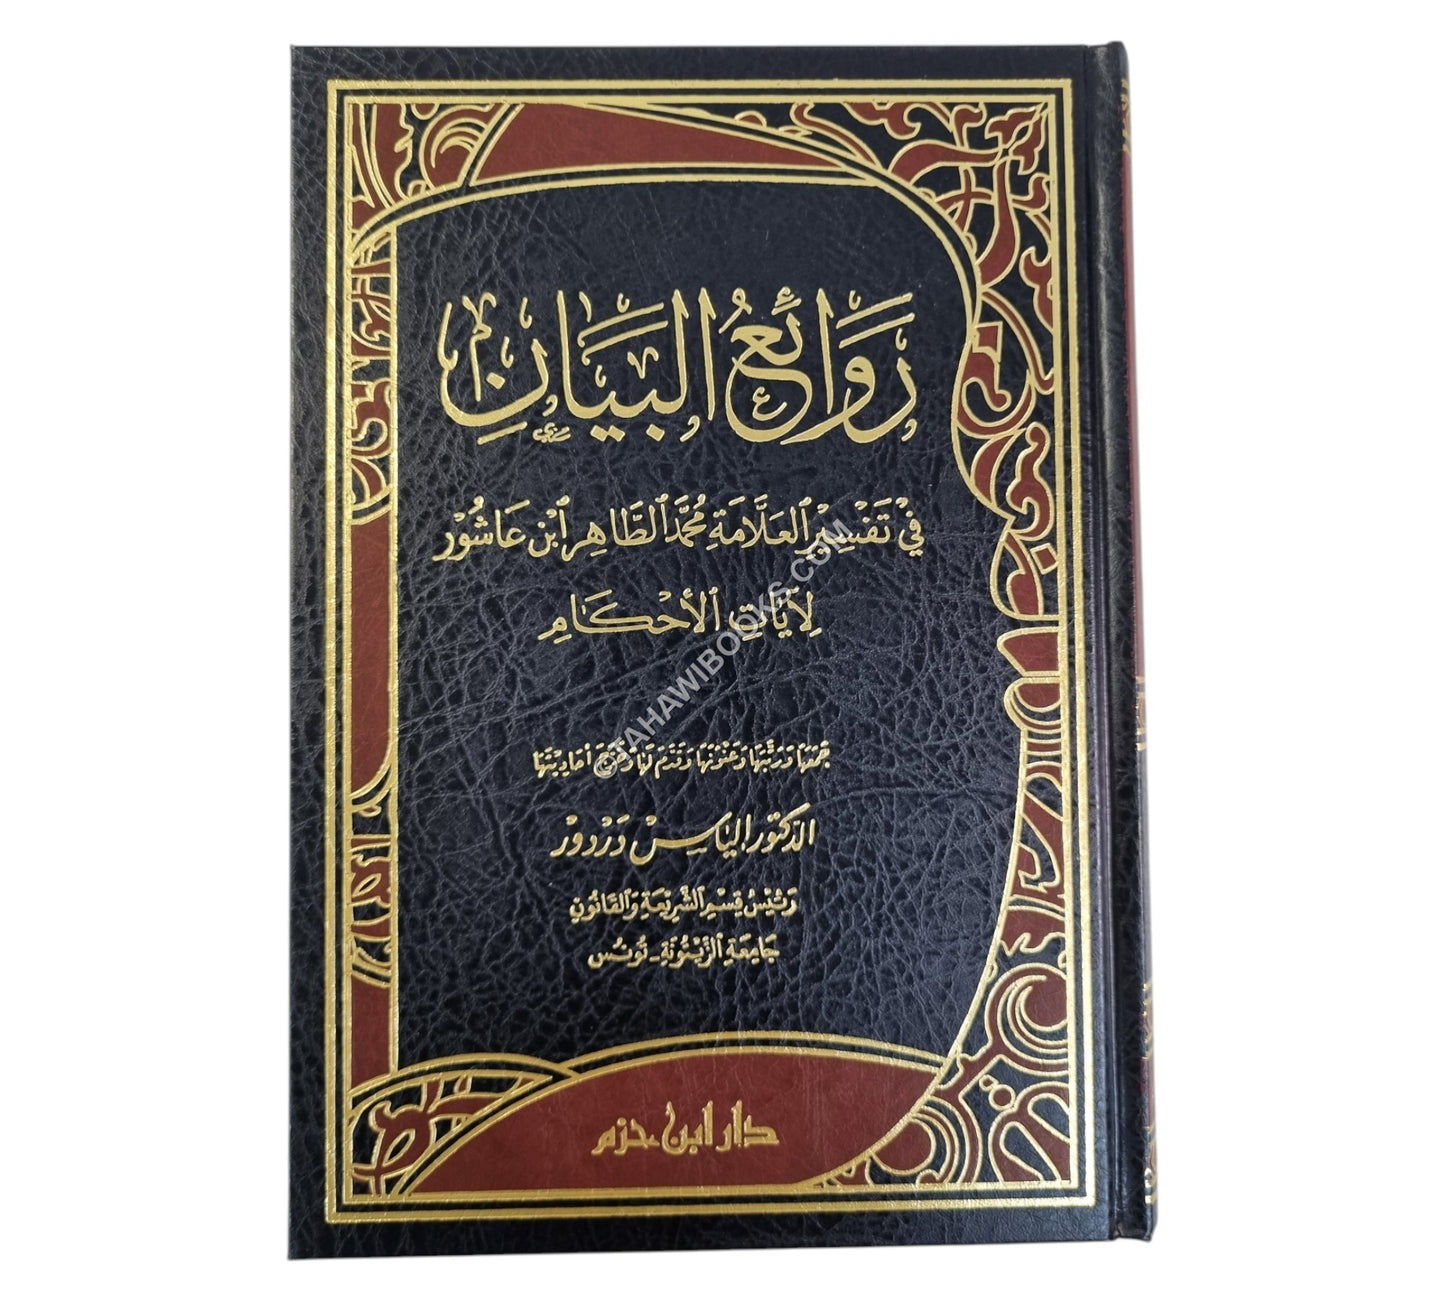 رَوَائِعُ البَيَانِ
فِي تَفْسِيرِ العَلَّامَةِ مُحَمَّد الطَّاهِر ابْن عَاشُوْر
لِآيَاتِ الأَحْكَامِ
جَمَعَهَا وَرَتَّبَهَا وَعَنْوَنَهَا وَقَدَّمَ لَهَا وَخَرَّجَ أَحَادِيثَهَا
الدكتور إلياس دَرْدوْر
رَئيسُ قِسْمِ الشَّرِيعَةِ وَالقَانُونِ
جَامِعَةِ الزَّيْتُونَةِ - تُونُس
دار ابن حزم
©TAHAWIBOOKS.COM